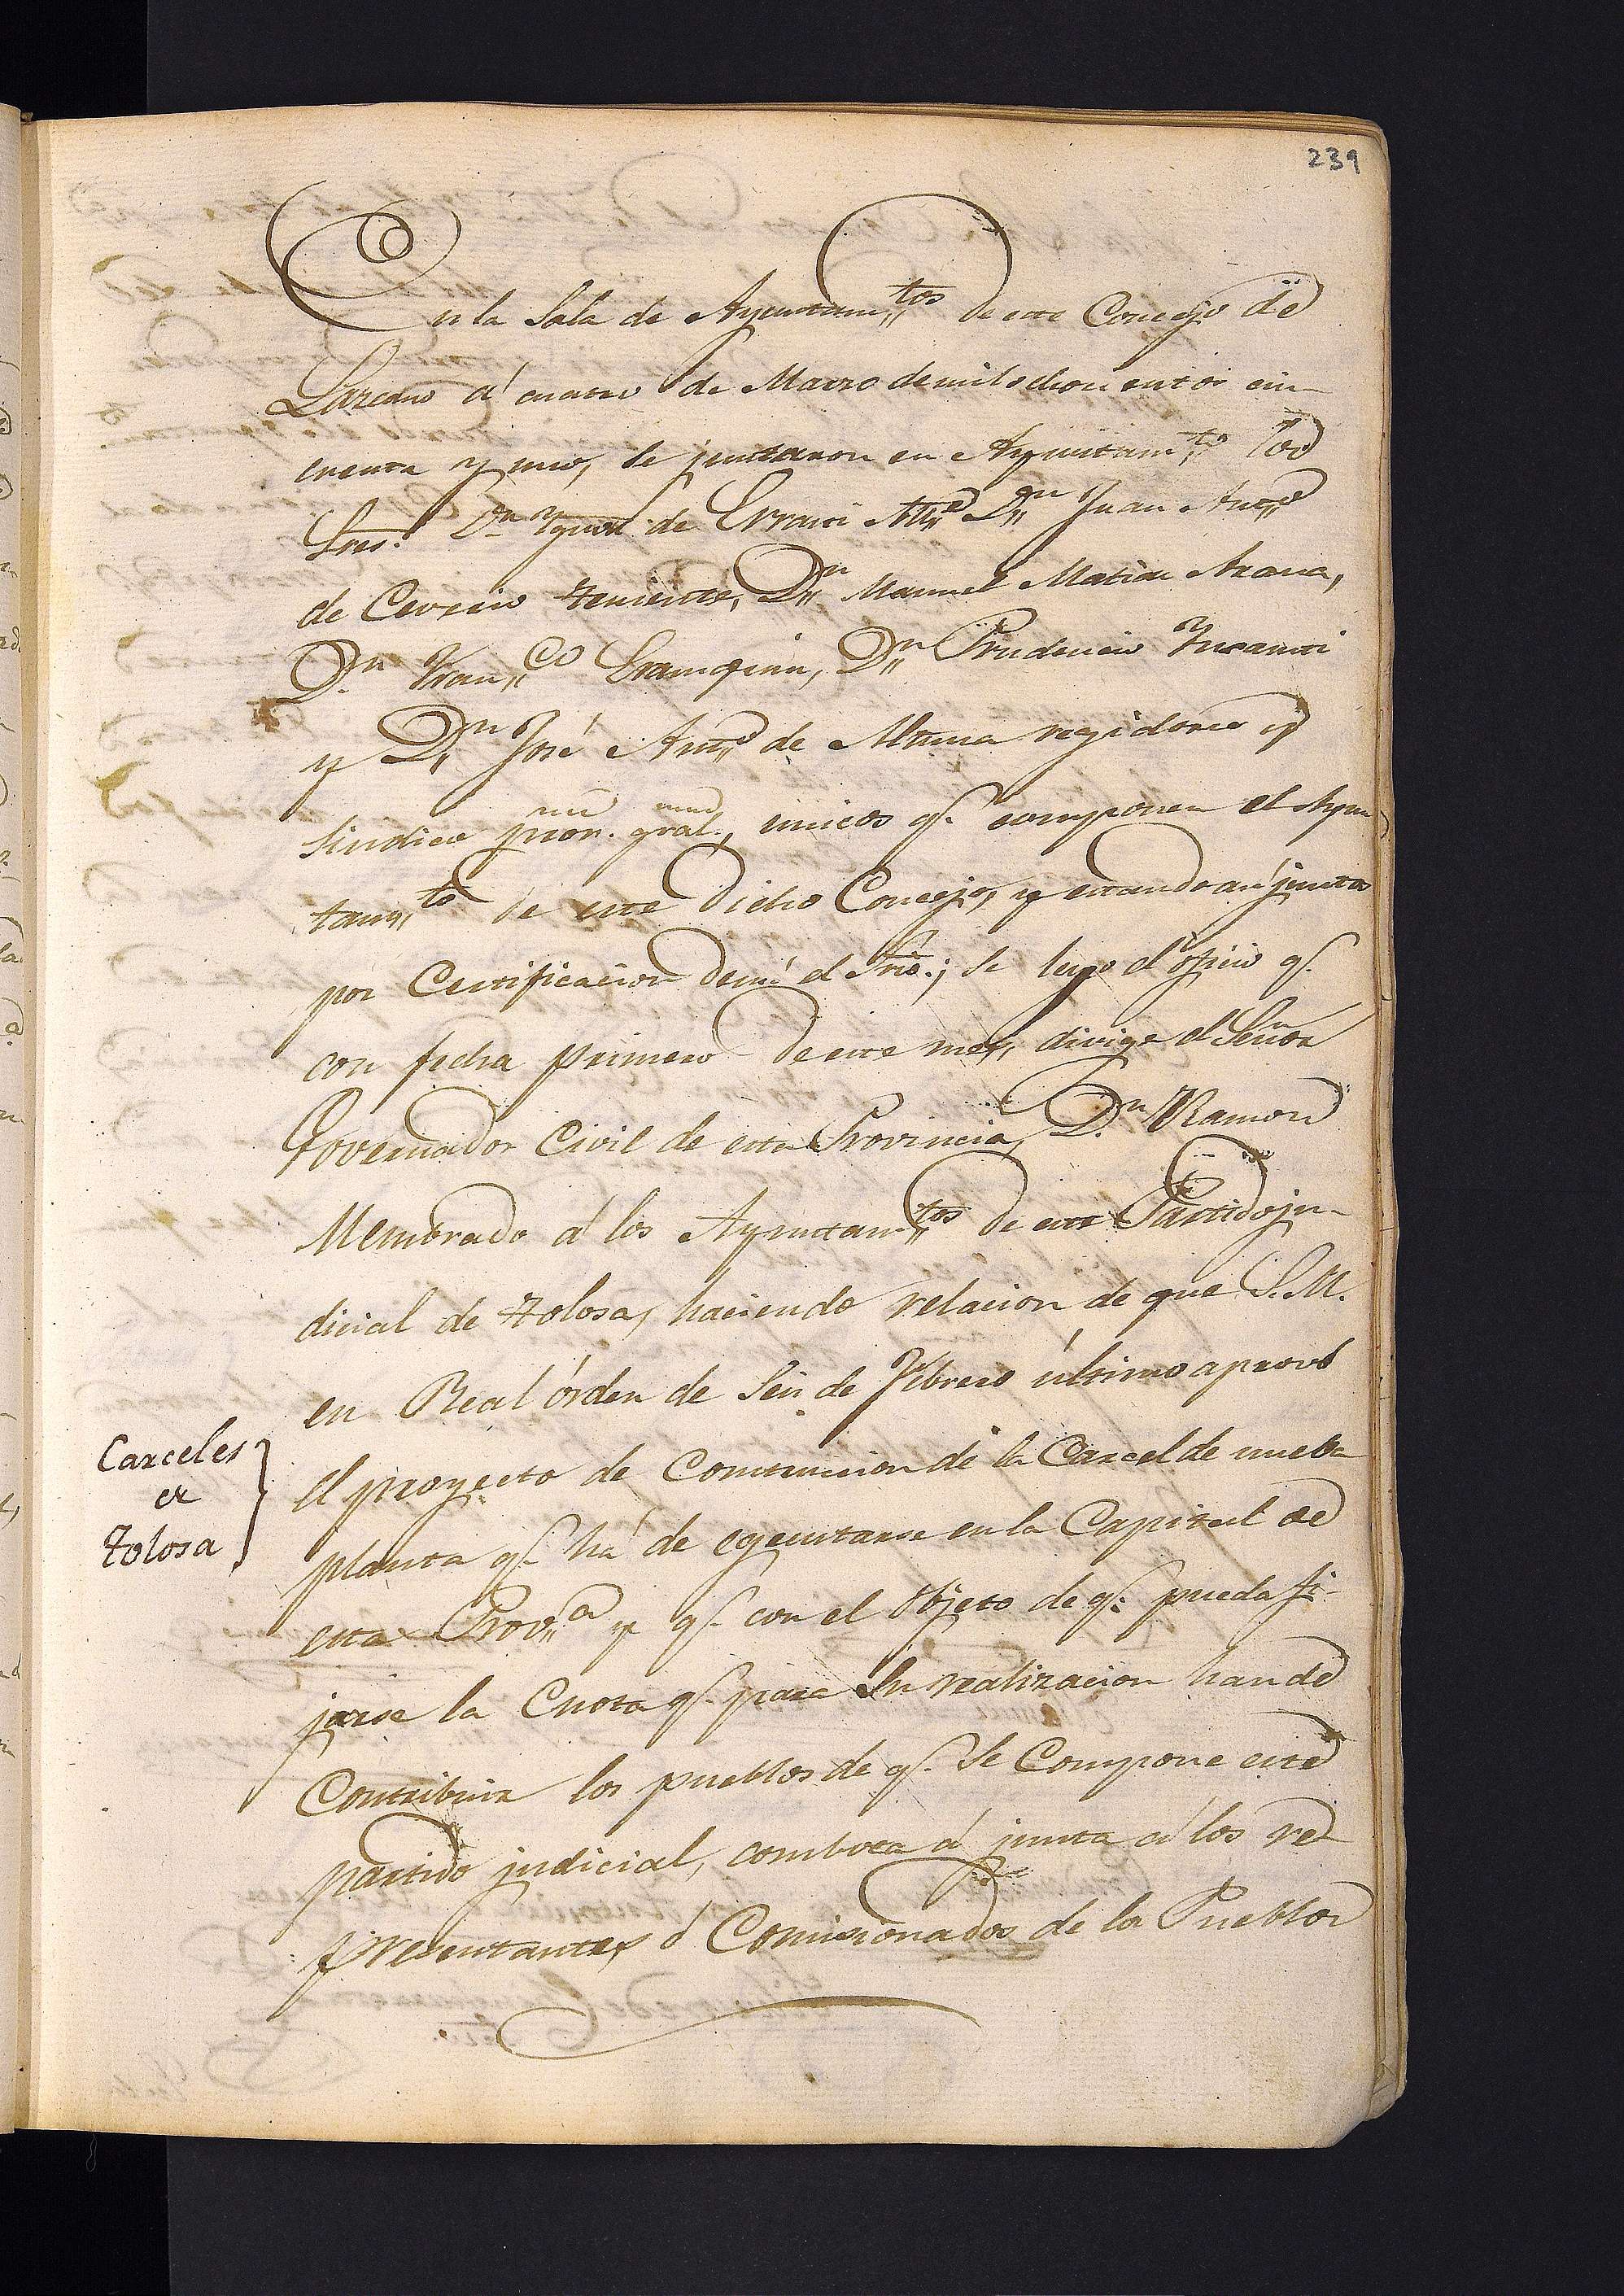 239
En la Sala de Ayuntam,,tos de este Concejo de
Lazcano á cuatro de Marzo de mil ochocientos cin-
cuenta y uno, se juntaron en Ayuntam,,to los
Sres. Dn Ygno. de Alc,,e D,,n Juan Ant,,o
de teniente, D,,n Manuel Matias Arana,
D.n Fran,,co D,,n Prudencio
y D,,n José Ant,,o de Altuna regidores y
Sindico pror. gral., unicos q.e componen el Ayun
tam,,to de este dicho Concejo, y estando asi juntos
por Certificacion de mi el Srio.; se leyo el oficio q.e
con fecha primero de este mes, dirige el Señor
Governador Civil de esta Provincia, D.n Ramon
Membrado á los Ayuntam,,tos de este Partido ju-
dicial de Tolosa, haciendo relacion de que S. M.
en Real órden de Seis de Febrero último aprovó
el proyecto de Construccion de la Carcel de nueba
planta q.e há de egecutarse en la Capital de
esta Prov,,a y q.e con el objeto de q.e pueda fi-
jarse la Cuota q.e para su realizacion han de
Contribuir los pueblos de q.e se Compone este
partido judicial, comboca á junta á los re-
presentantes ó Comisionados de los Pueblos
Carceles
en
Tolosa